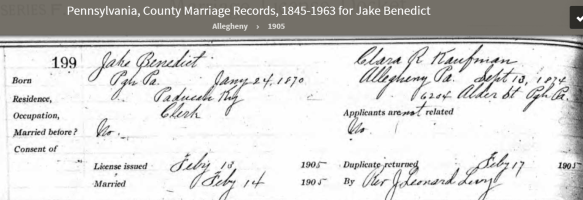 Pennsylvania, County Marriage Records, 1845-1963 for Jake Benedict
Allegheny › 1905
199 Jake Benedict Clara R Kaufman
Born Pgh Pa. Jany 24, 1870 Allegheny Pa. Sept 13, 1874
Residence, Paducah Ky 6204 Alder St Pgh Pa.
Occupation, Clerk Applicants are not related
Married before? No. No
Consent of
License issued Feby 13 1905 Duplicate returned Feby 17 1905
Married Feby 14 1905 By Rev J Leonard Levy